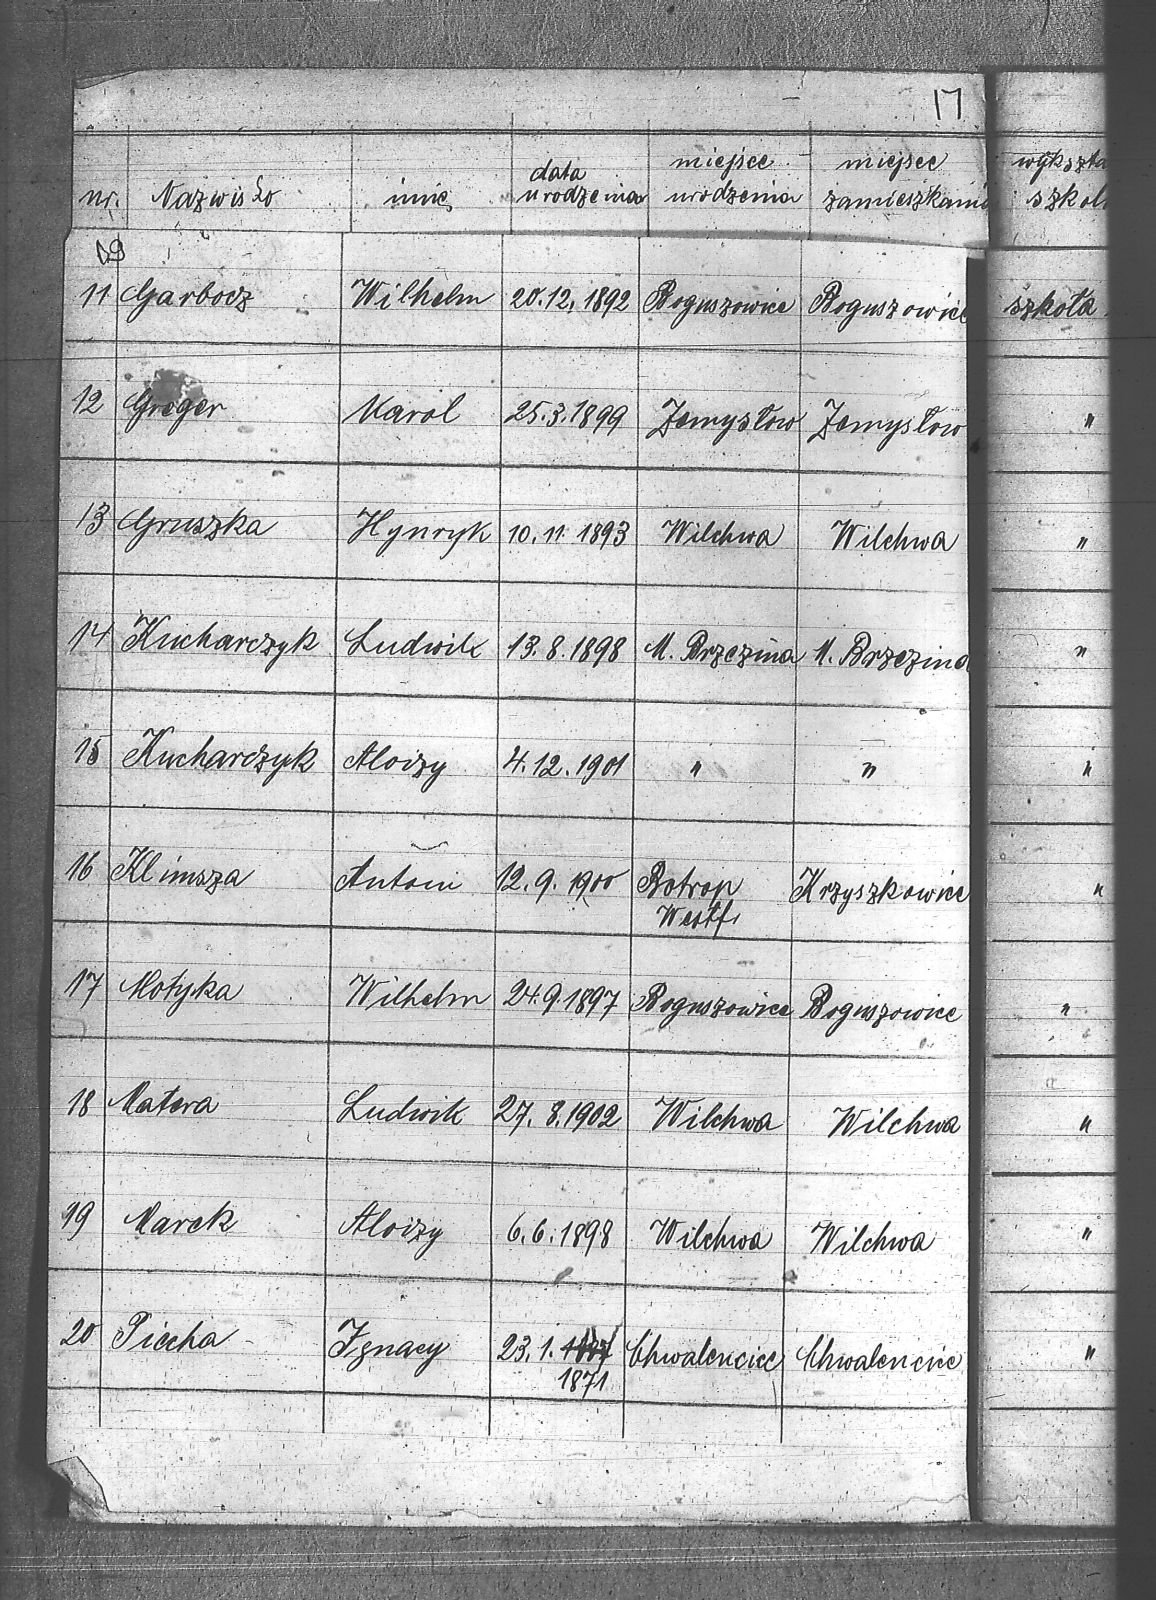 17
nr. Nazwisko imię data urodzenia miejsce urodzenia miejsce zamieszkania wykszta szkol
11 Garbocz Wilhelm 20.12.1892 Boguszowice Boguszowice szkoła
12 Greger Karol 25.3.1899 Jemysłow Jemysłow "
13 Gruszka Hynryk 10.11.1893 Wilchwa Wilchwa "
14 Kucharczyk Ludwik 13.8.1898 M. Brzezina M. Brzezina "
15 Kucharczyk Aloizy 4.12.1901 " " "
16 Klimsza Antoni 12.9.1900 Botrop Westf. Krzyszkowice "
17 Motyka Wilhelm 24.9.1897 Boguszowice Boguszowice "
18 Matera Ludwik 27.8.1902 Wilchwa Wilchwa "
19 Marek Aloizy 6.6.1898 Wilchwa Wilchwa "
20 Piecha Ignacy 23.1. 1871 Chwalencice Chwalencice "